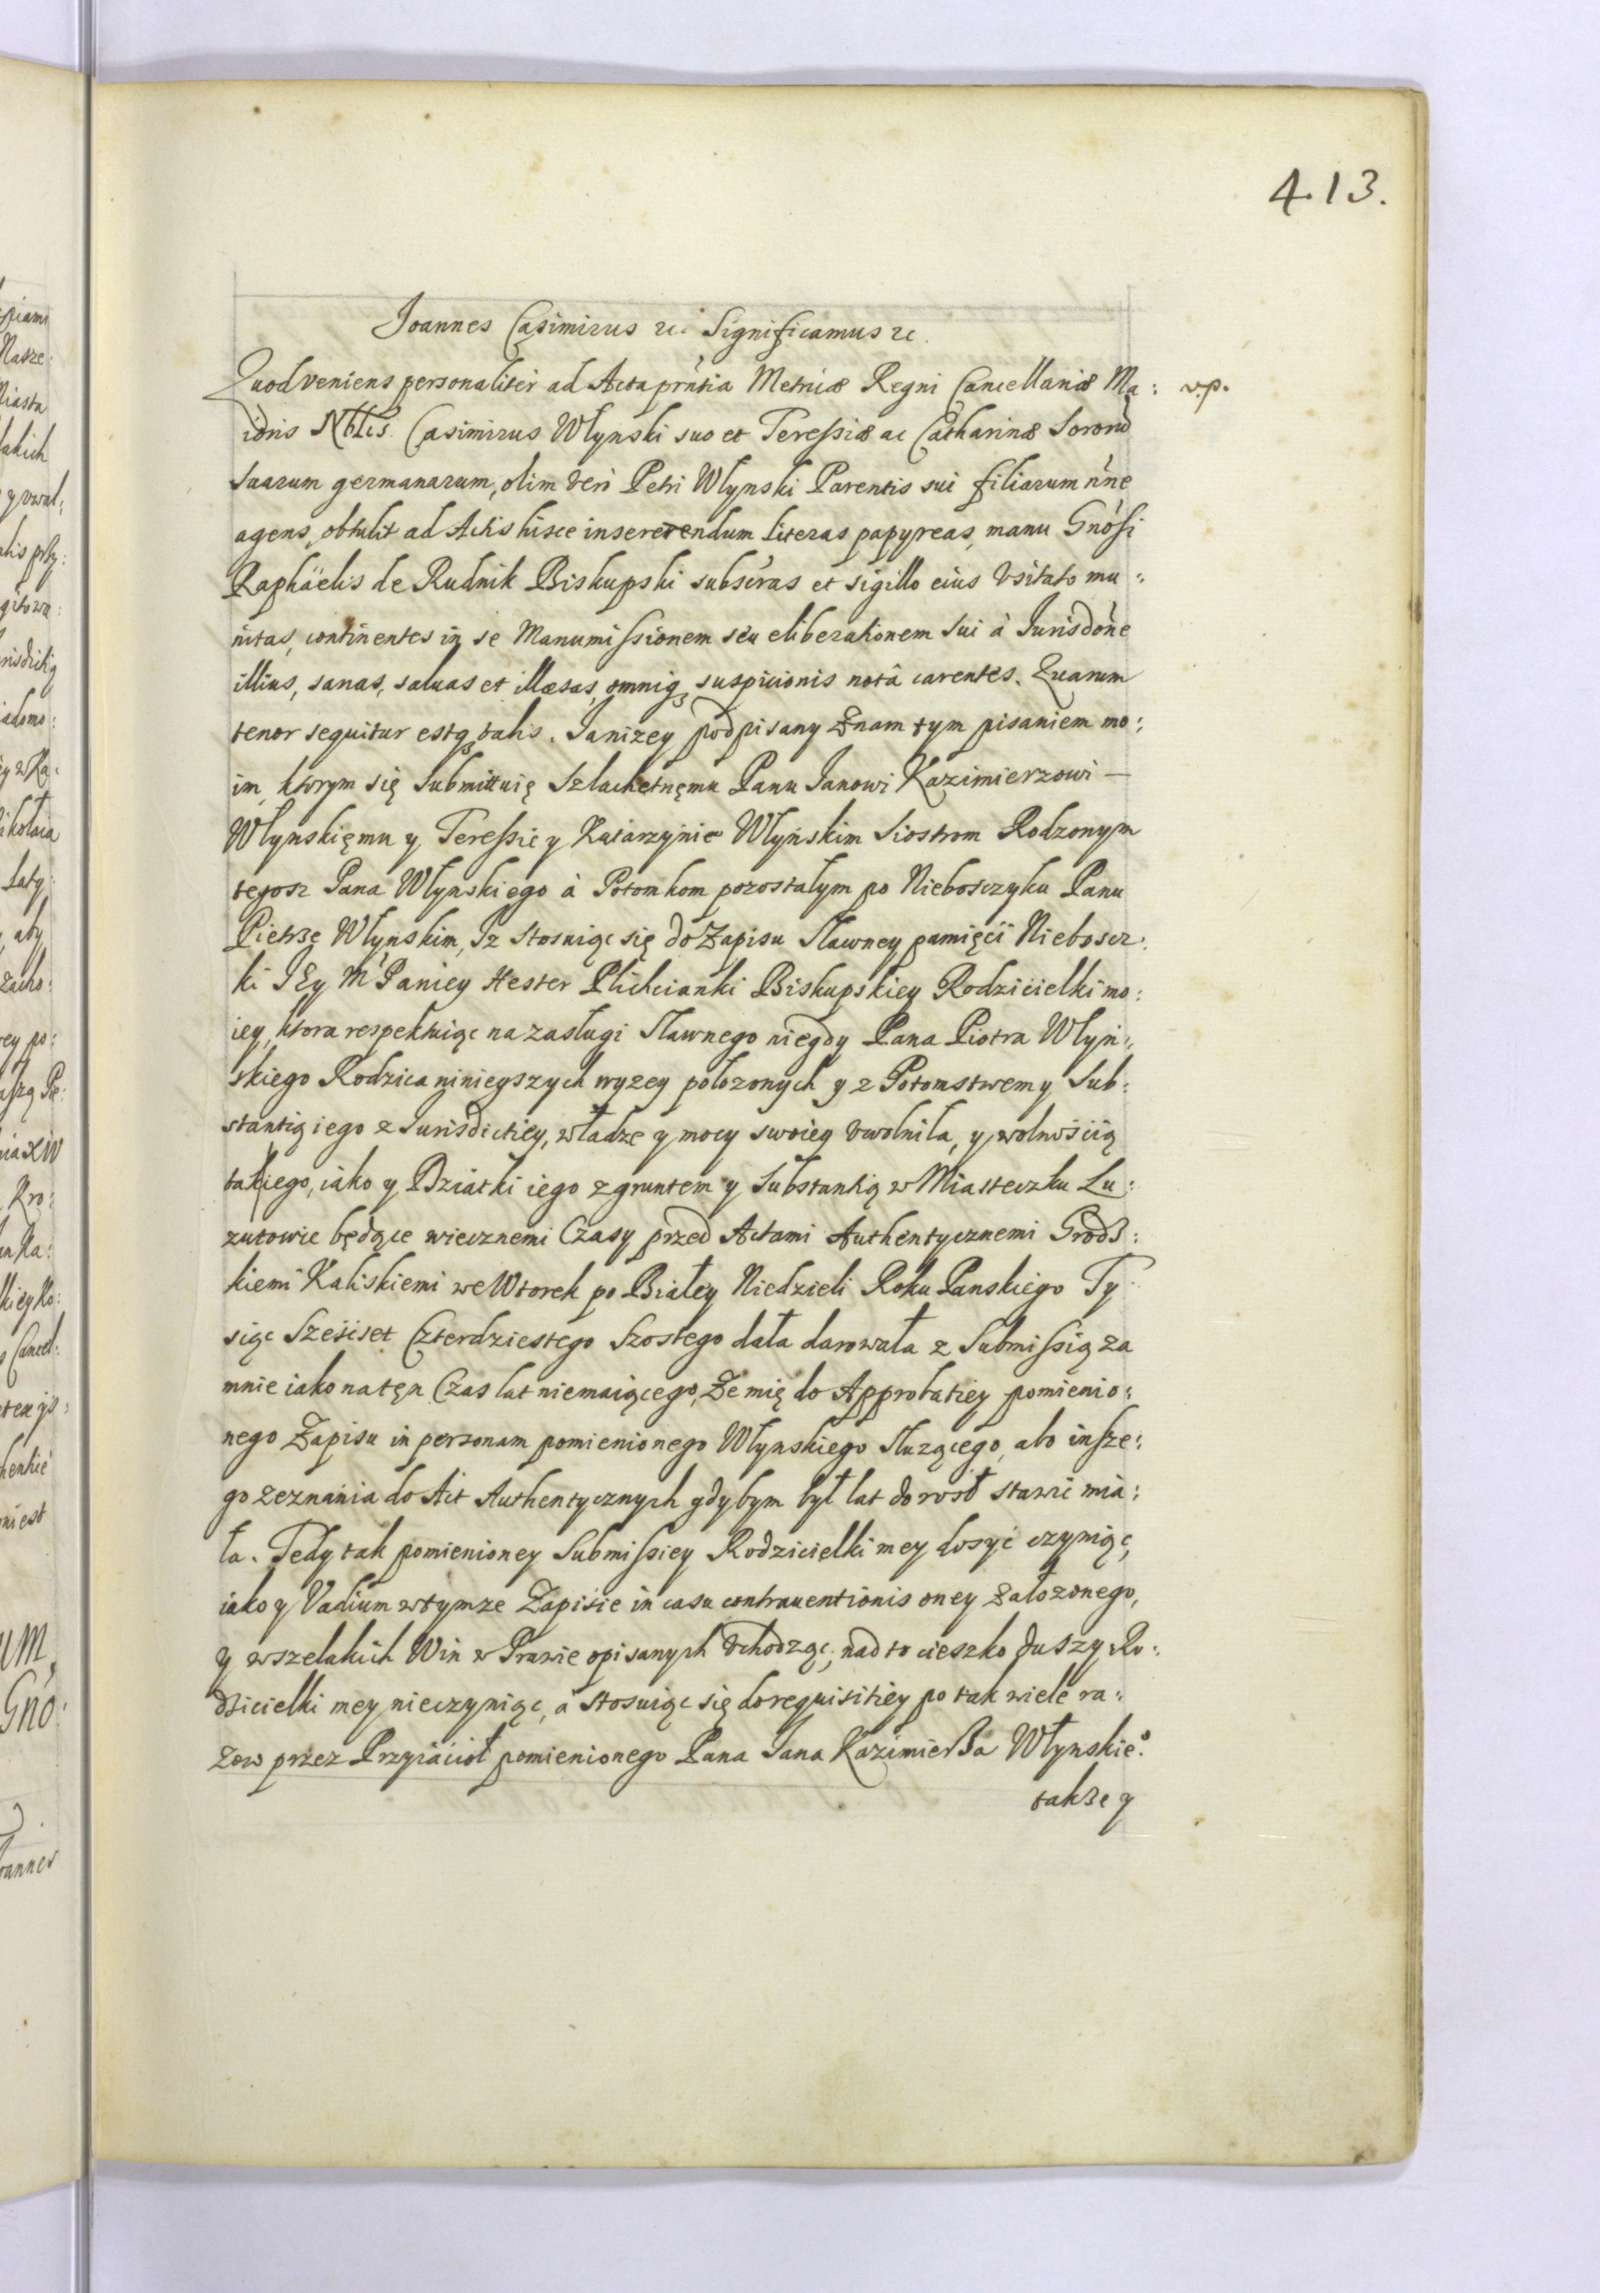 413.
Joannes Casimirus etc. Significamus etc.
Quod veniens personaliter ad Acta prntia Metricæ Regni Cancellariæ Ma: v.p.
ioris Nblis Casimirus Wlynski suo et Teressiæ ac Catharinæ Sororū
suarum germanarum, olim Veri Petri Wlynski Parentis sui filiarum nne
agens, obtulit ad Actis hisce insererendum literas papyreas, manu Gnosi
Raphäelis de Rudnik Biskupski subscras et sigillo eius Vsitato mu:
nitas, continentes in se Manumissionem seu eliberationem sui à Jurisdone
illius, sanas, saluas et illæsas, omniq3 suspicionis notâ carentes. Quarum
tenor sequitur estq3 talis. Ja nizey podpisany Znam tym pisaniem mo:
im, ktorym się Submittuię Szlachetnęmu Panu Janowi Kazimierzowi —
Wlynskięmu y Teressie y Katarzynie Wlyńskim Siostrom Rodzonym
tegosz Pana Wlynskiego à Potomkom pozostałym po Nieboszczyku Panu
Pietrzę Wlynskim, Iz stosuiąc się do Zapisu Sławney pamięci Niebosz:
ki JEy Mći Paniey Hester Plichcianki Biskupskiey Rodzicielki mo:
iey, ktora respektuiąc na zasługi Sławnego niegdy Pana Piotra Wlyń:
skiego Rodzica ninieyszych wyzey połozonych y z Potomstwem y Sub:
stantią iego z Jurisdictiey, władze y mocy swoiey Vwolniła, y wolnością
takiego, iako y Dziatki iego z gruntem y Substantią w Miasteczku Lu:
zutowie będące wiecznemi Czasy przed Actami Authentycznemi Grodz:
kiemi Kaliskiemi we Wtorek po Białey Niedzieli Roku Panskiego Ty:
siąc Sześćset Czterdziestego Szostego dała darowała z Submissią za
mnie iako na tęn Czas lat niemaiącego, Ze mię do Approbatiey pomienio:
nego Zapisu in personam pomienionego Wlynskiego Słuzącego, abo insze:
go zeznania do Act Authentycznych gdy bym był lat dorosł stawić mia:
ła. Tedy tak pomienioney Submissiey Rodzicielki mey dosyć czyniąc,
iako y Vadium w tymze Zapisie in casu contrauentionis oney Załozonego,
y wszelakich Win w Prawie opisanych Vchodząc, nad to cieszko duszy Ro:
dzicielki mey nieczyniąc, à stosuiąc się do requisitiey po tak wiele ra:
zow przez Przyiacioł pomienionego Pana Jana Kazimierza Wlynskieo
takze y